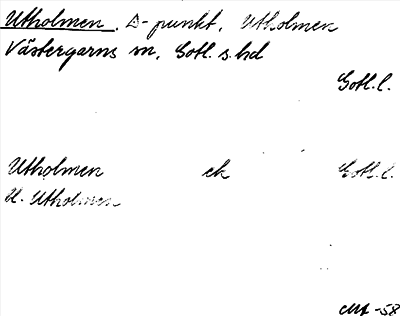 Utholmen, Δ-punkt, Utholmen
Västergarns sn, Gotl. s. hd
Gotl. l.
Utholmen ek Gotl. l.
Utholmen
-58